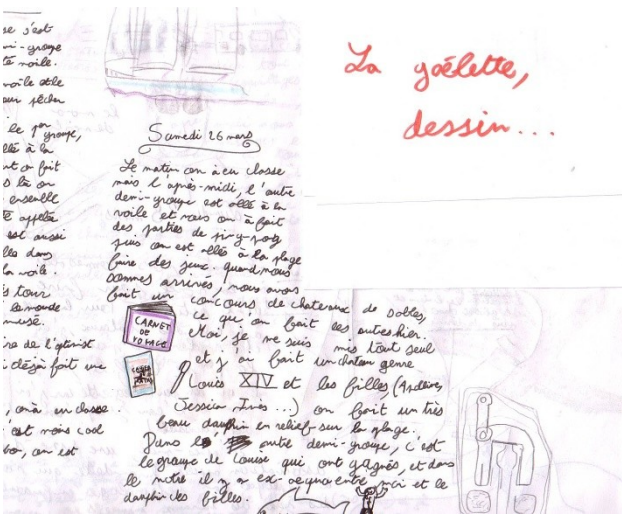 se s'est
mi-groupe
te voile.
voile et le
our sécher
le 1er groupe,
nt a fait
s là on
ensemble
té appelée
est aussi
lles dans
la voile.
s tour
le monde
musé.
re de l'optimist
déjà fait une
, on à eu classe
'est mons cool
bo, on est
Samedi 26 mars
Le matin on à eu classe
mais l'après-midi, l'autre
demi-groupe est allé à la
voile et nous on à fait
des parties de ping-pong
puis on est allés à la plage
faire des jeux. quand nous
sommes arrivés, nous avons
fait un concours de chateaux de sables,
ce qu'on fait les autres hier.
Moi, je me suis mis tout seul
et j'ai fait un chateau genre
Louis XIV et les filles, (Andréa,
Jessica Inès...) on fait un très
beau dauphin en relief sur la plage.
Dans l' autre demi-groupe, c'est
le groupe de Louise qui ont gagnés, et dans
le notre il y a ex-aequo entre moi et le
dauphin des filles.
CARNET
DE
VOYAGE
La goélette,
dessin...